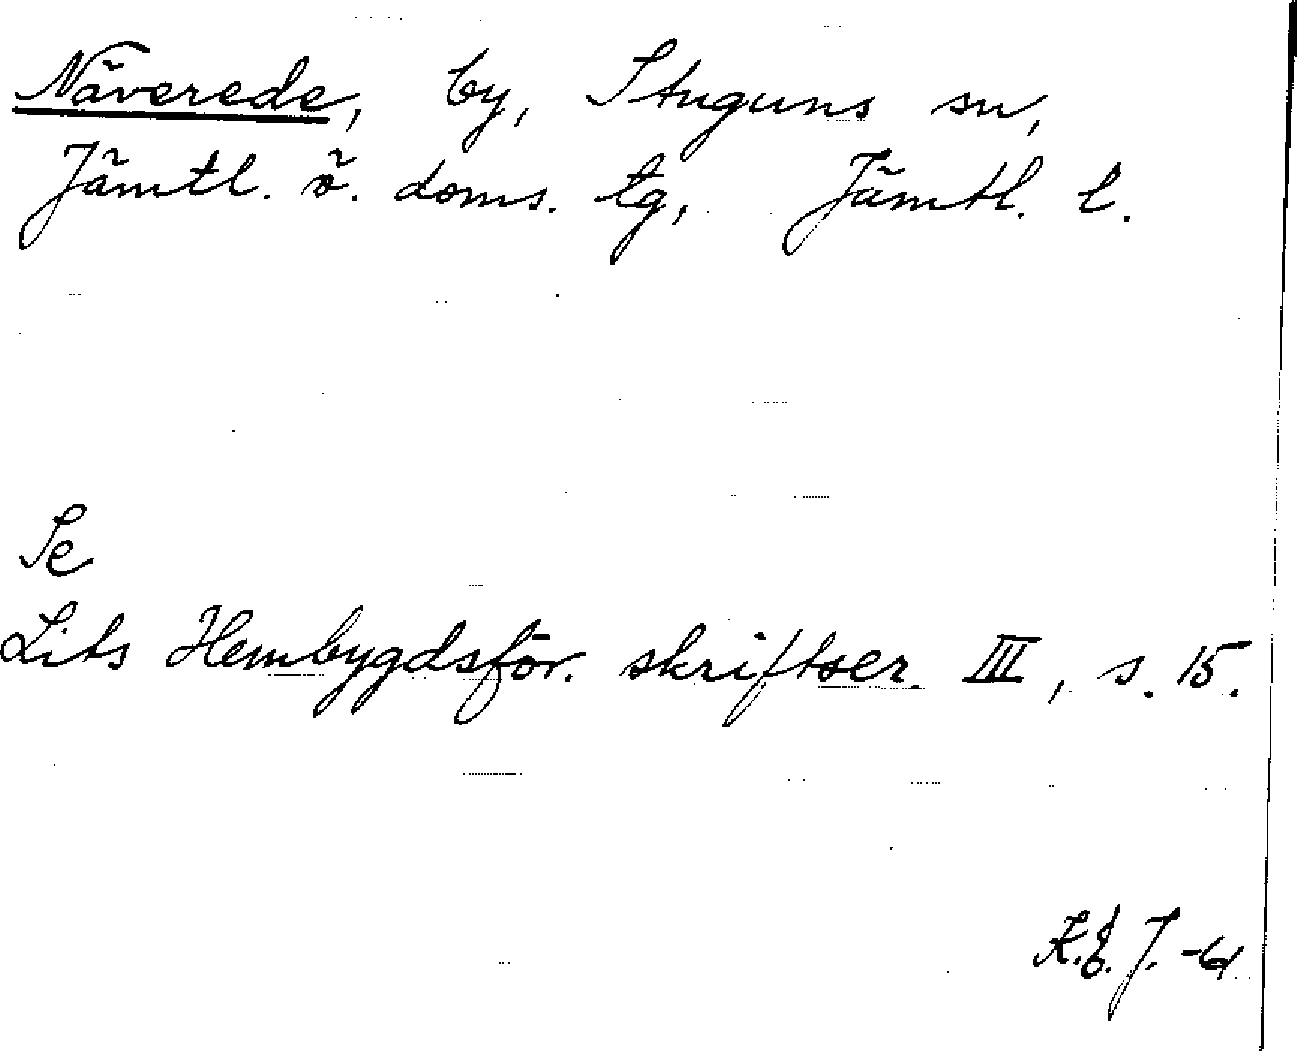 Näverede, by, Stuguns sn,
Jämtl. ö. doms. tg, Jämtl. l.
Se
Lits Hembygdsför. skriftser. III, s. 15.
-61